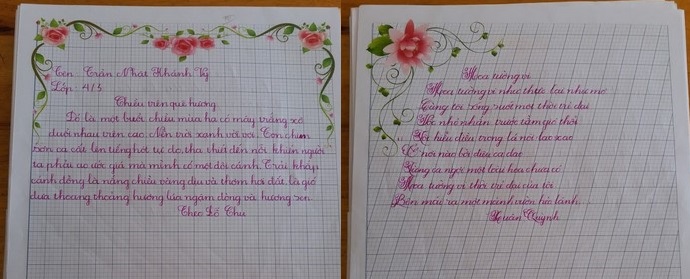 Tên: Trần Nhật Khánh Vy
Lớp: 4/3
Chiều trên quê hương
Đó là một buổi chiều mùa hạ có mây trắng xô
đuổi nhau trên cao. Nền trời xanh vời vợi. Con chim
sơn ca cất lên tiếng hót tự do, tha thiết đến nỗi khiến người
ta phải ao ước giá mà mình có một đôi cánh. Trải khắp
cánh đồng là nắng chiều vàng dịu và thơm hơi đất, là gió
đưa thoang thoảng hương lúa ngậm đòng và hương sen.
Theo Đỗ Chu
Hoa tường vi
Hoa tường vi như thực lại như mơ
Cùng tôi sống suốt một thời trẻ dại
nhỏ nhắn trước tầm gió thổi
hiểu điều trong lá nói lao xao
nơi nào bởi đâu ca dao
ca ngợi một loài hoa chưa có
Hoa tường vi thời trẻ dại của tôi
mãi ra một mảnh vườn
Xuân Quỳnh